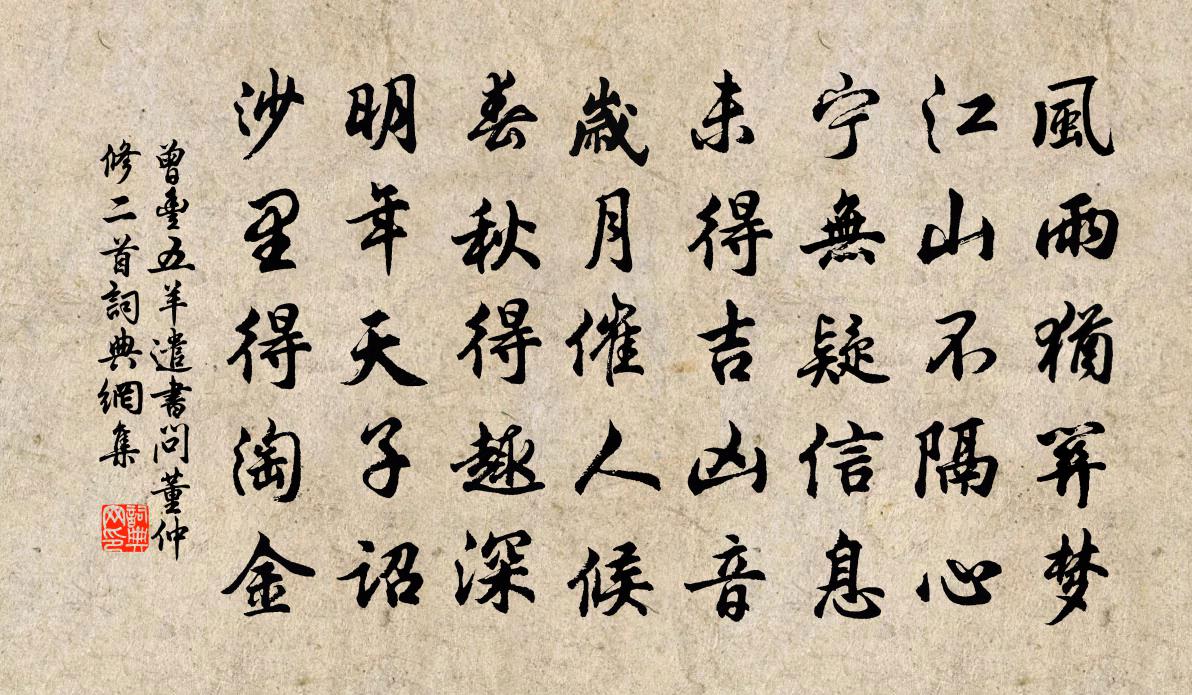 風雨猶笄梦
江山不隔心
宁無疑信息
未得吉凶音
歳月催人候
春秋得趣深
明年天子诏
沙里得淘金
曾豊五羊遣書問董仲
修二首詞典網集
詞典
网印